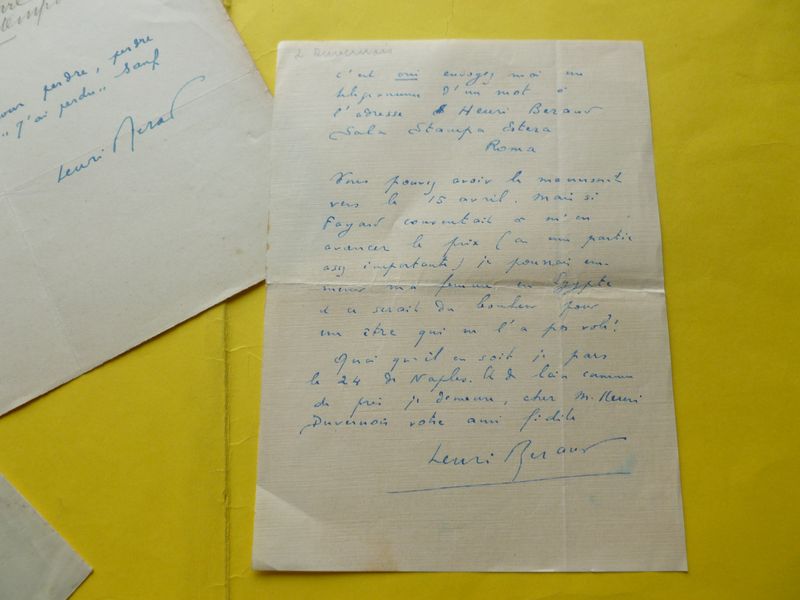 pour perdre, perdre
"J'ai perdu" sauf
Henri Beraud
à Duvernois
c'est oui envoyez moi un
télégramme d'un mot à
l'adresse Henri Beraud
Sala Stampa Estera
Roma
Vous pouvez avoir le manuscrit
vers le 15 avril. Mais si
Fayard consentait à m'en
avancer le prix (ou une partie
assez importante) je pourrais em-
mener ma femme en Egypte
et ce serait du bonheur pour
un être qui ne l'a pas volé!
Quoi qu'il en soit je pars
le 24 de Naples. Et de loin comme
de près je demeure, cher M. Henri
Duvernois votre ami fidèle
Henri Beraud